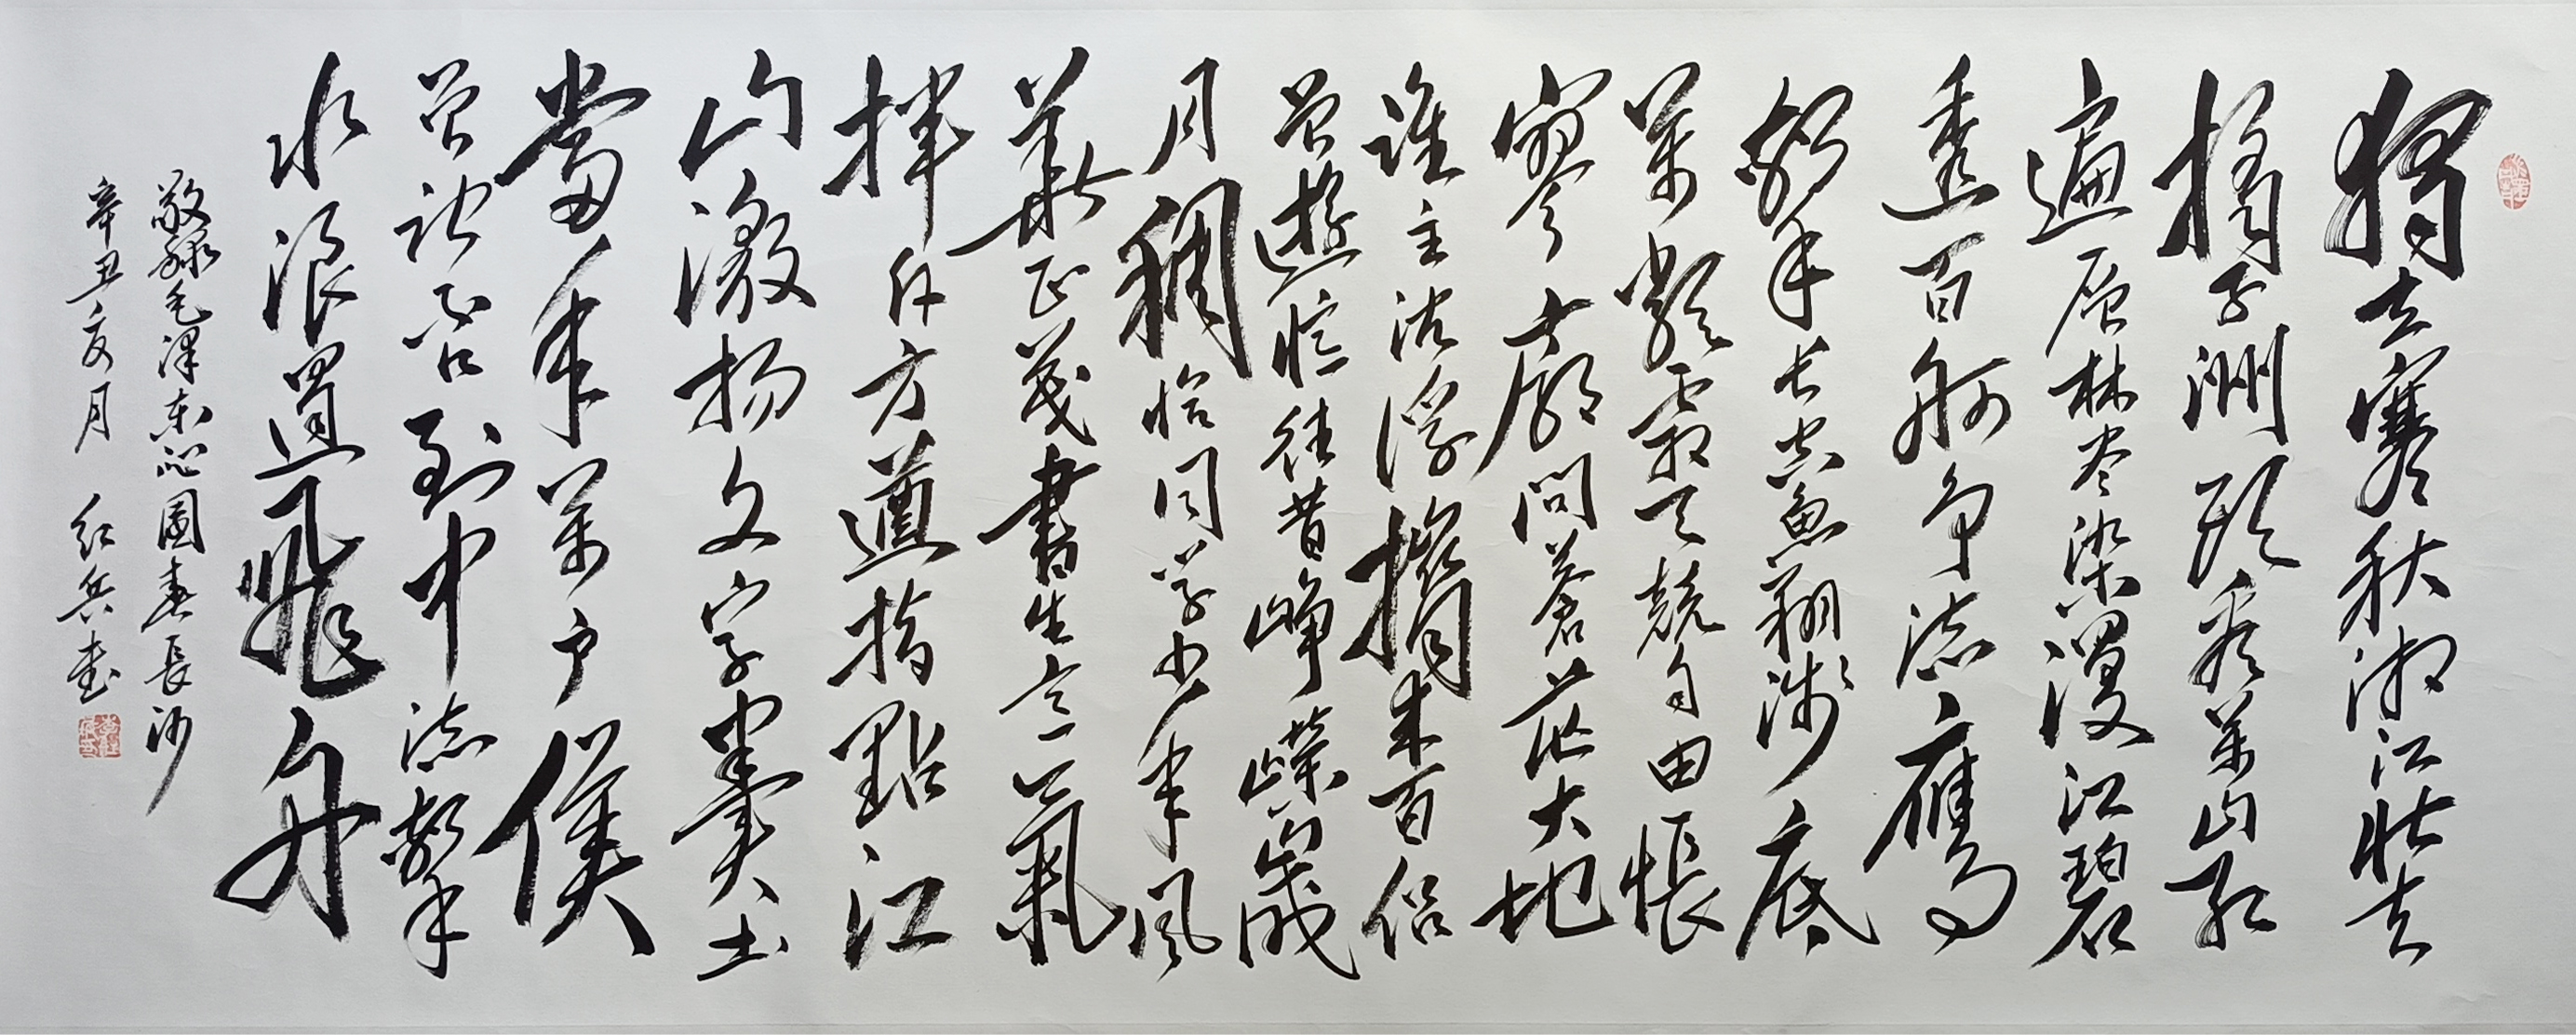 獨立寒秋湘江北去
橘子洲頭看萬山紅
遍层林尽染漫江碧
透百舸争流鷹
擊长空魚翔浅底
萬類霜天競自由悵
寥廓問蒼茫大地
誰主沉浮攜来百侣
曾遊憶往昔崢嶸歲
月稠恰同学少年風
華正茂書生意氣
揮斥方遒指點江
山激扬文字糞土
當年萬户侯
曾记否到中流擊
水浪遏飛舟
敬録毛澤东沁園春長沙
辛丑夏月 红兵書